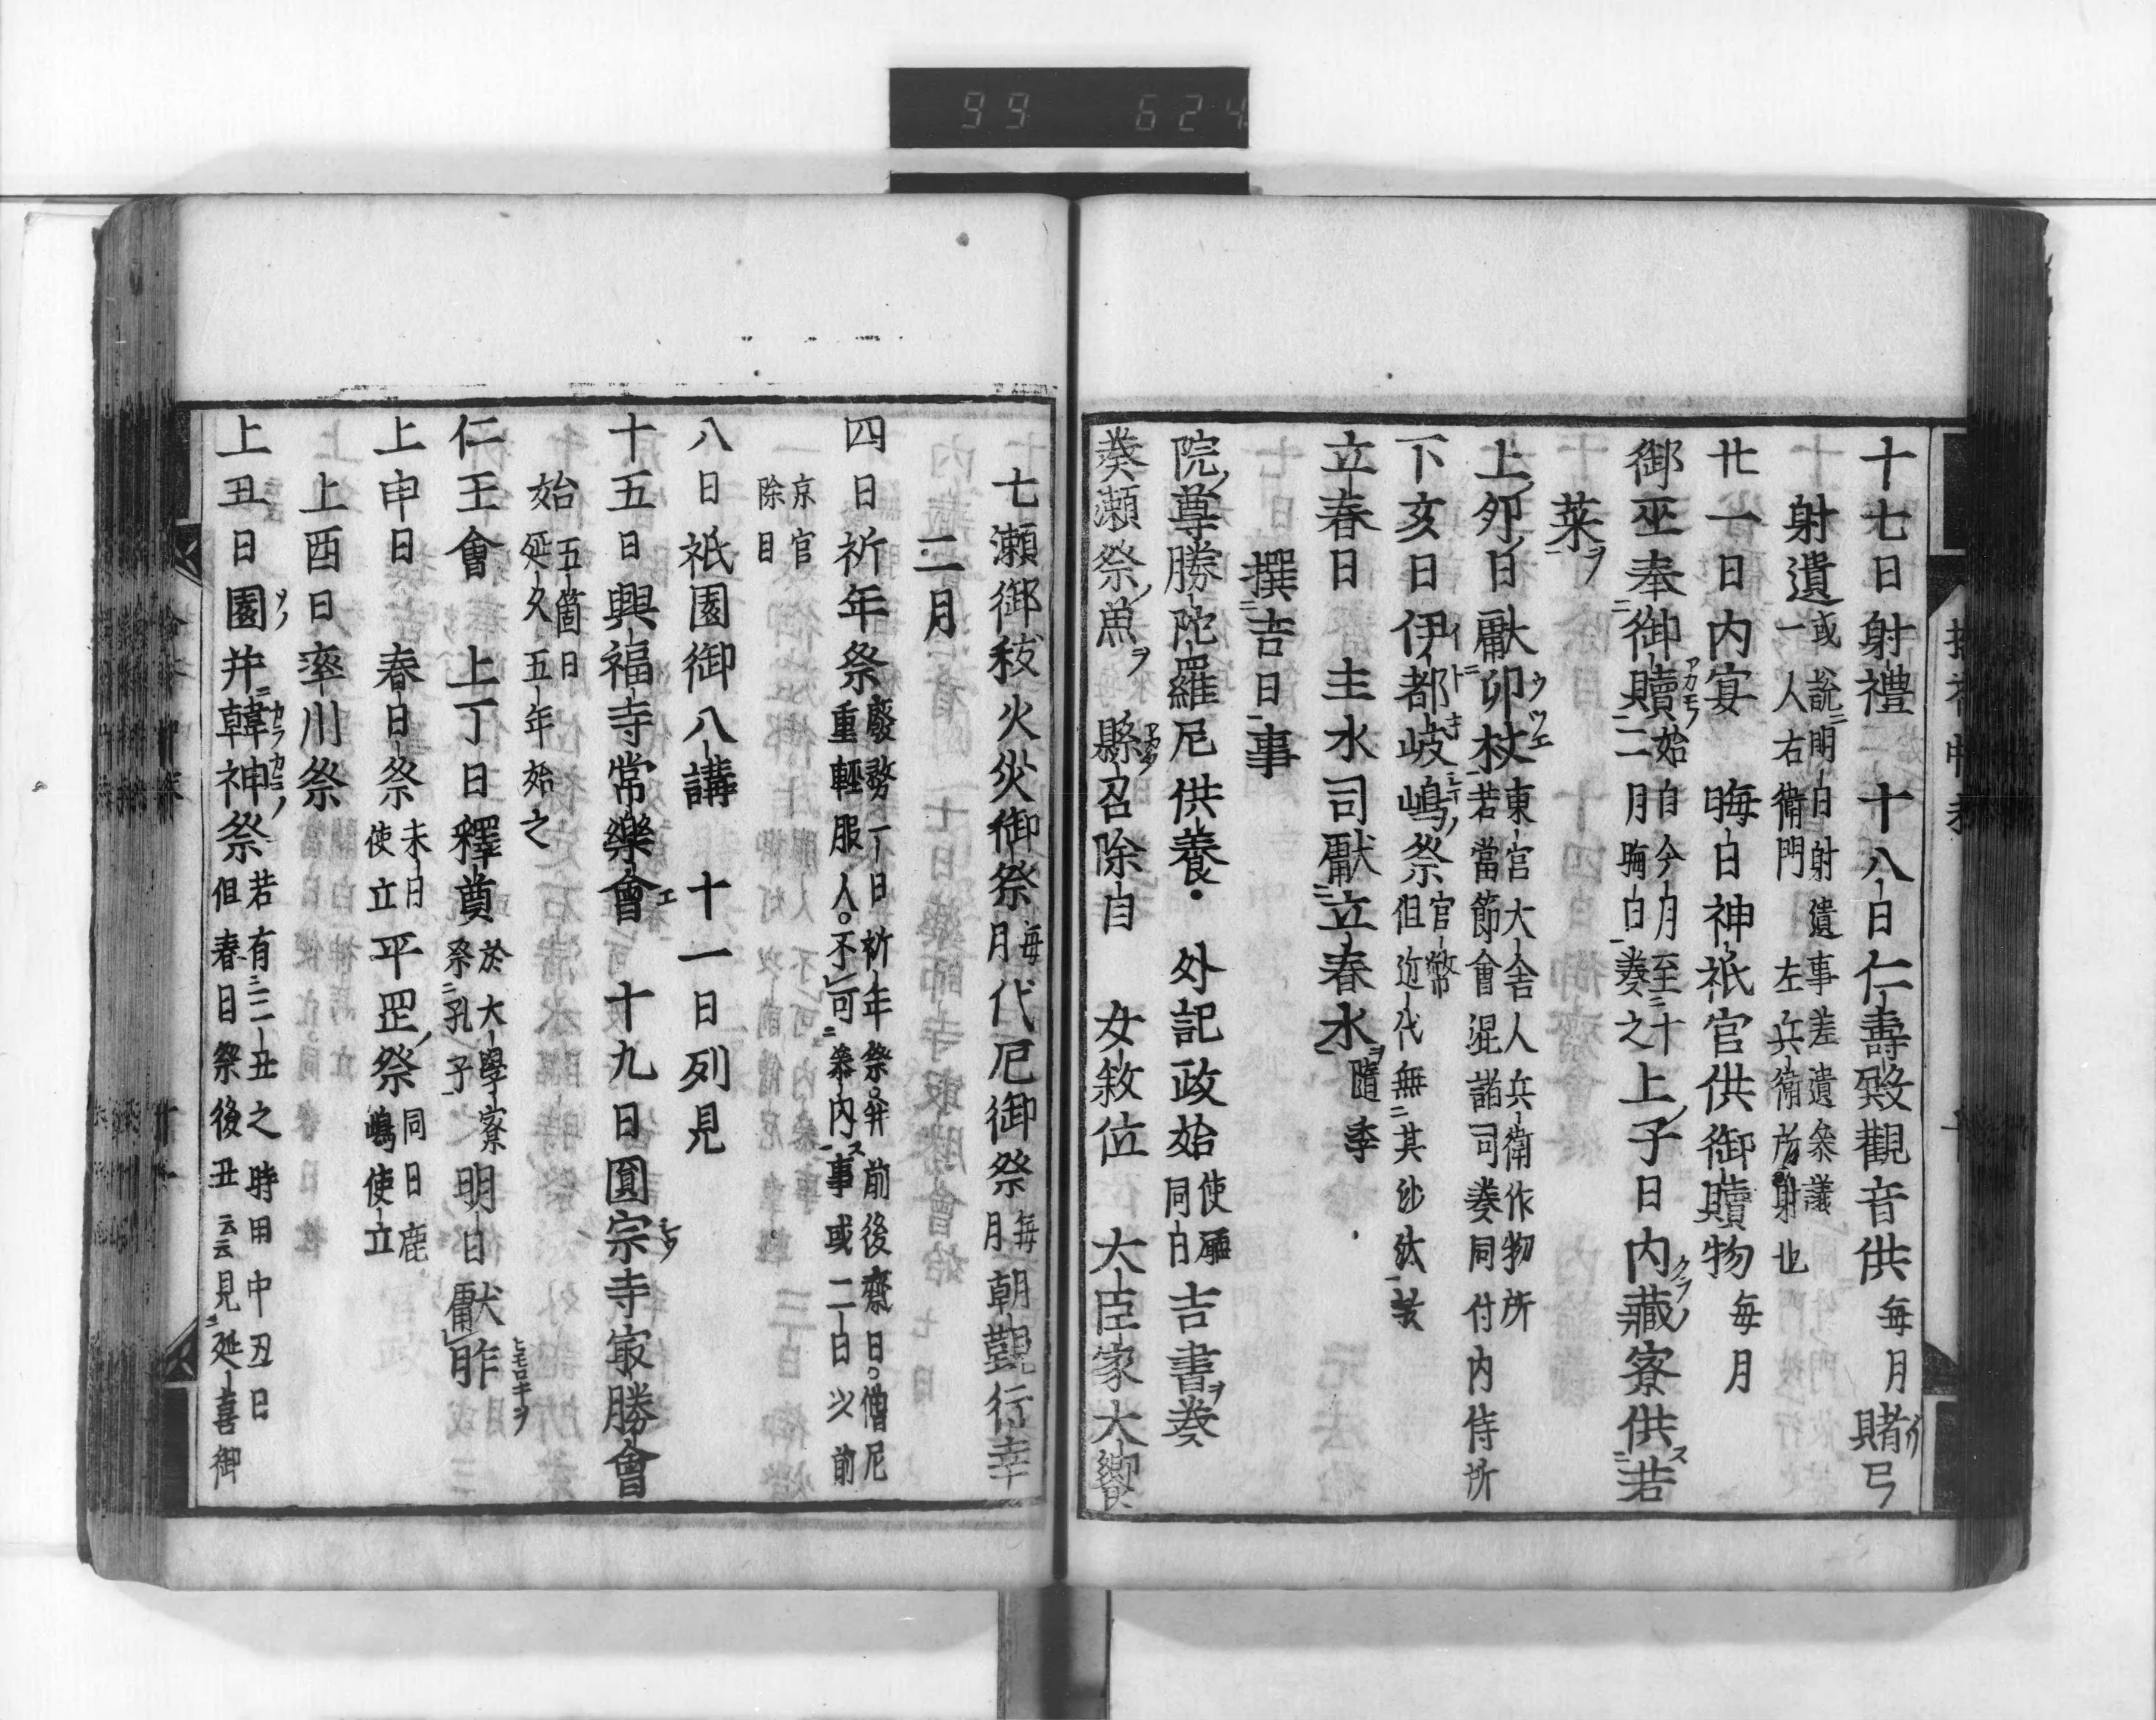 99 624
十七日射禮 十八日仁壽殿觀音供毎月 賭弓
射遺或說明日射遺事差遣參議
一人右衛門 左兵衛府射也
廿一日内宴 晦日神祇官供御贖物毎月
御巫奉御贖始自今月至十
二月晦日奏之 上子日内藏寮供若
菜
上卯日獻卯杖東宮大舍人兵衛作物所
若當節會混諸司奏同付内侍所
下亥日伊都岐嶋祭官幣
但近代無其沙汰
立春日 主水司獻立春水隨季
撰吉日事
院尊勝陀羅尼供養 外記政始使廳
同日 吉書奏
葵瀨祭魚 縣召除目 女敘位 大臣家大饗
七瀬御秡火災御祭毎月 代厄御祭毎月 朝覲行幸
二月
四日祈年祭廢務丁日祈年祭幷前後齋日僧尼
重輕服人不可參内事或二日以前
京官
除目
八日祇園御八講 十一日列見
十五日興福寺常樂會 十九日圓宗寺㝡勝會
始五箇日
延久五年始之
仁王會 上丁日釋奠於大學寮
祭孔子 明日獻胙
上申日 春日祭未日
使立 平𦊆祭同日鹿
嶋使立
上酉日率川祭
上丑日園幷韓神祭若有三丑之時用中丑日
但春日祭後丑云云見延喜御